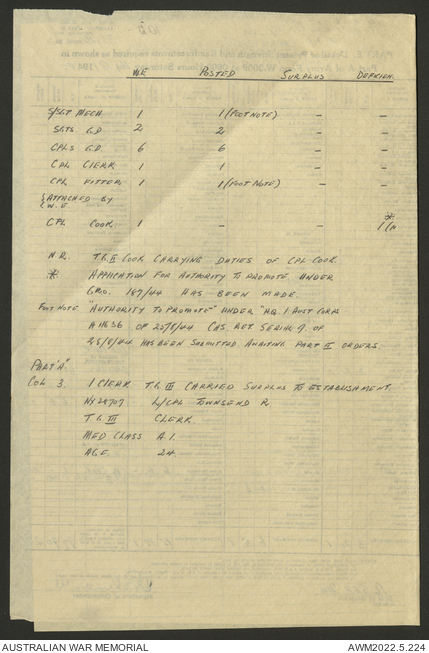 W.E POSTED SURPLUS DEFICIEN.
S/SGT MECH 1 1 (FOOTNOTE) - -
SGTS G.D 2 2 - -
CPLS G.D. 6 6 - -
CPL CLERK 1 1 - -
CPL FITTER 1 1 (FOOT NOTE) - -
{ATTACHED BY
{W.E
CPL COOK 1 - - 1
N.R. T.G. II COOK CARRYING DUTIES OF CPL COOK.
* APPLICATION FOR AUTHORITY TO PROMOTE UNDER
G.R.O. 189/44 HAS BEEN MADE.
FOOT NOTE "AUTHORITY TO PROMOTE" UNDER "HQ. 1 AUST CORPS
A11636 OF 25/8/44 CAS. RET SERIAL 9 OF
28/8/44 HAS BEEN SUBMITTED AWAITING PART II ORDERS.
PART "A"
COL 3. 1 CLERK T.G. III CARRIED SURPLUS TO ESTABLISHMENT.
L/CPL TOWNSEND R
T.G. III CLERK.
MED CLASS A.1.
AGE 24
AUSTRALIAN WAR MEMORIAL AWM2022.5.224